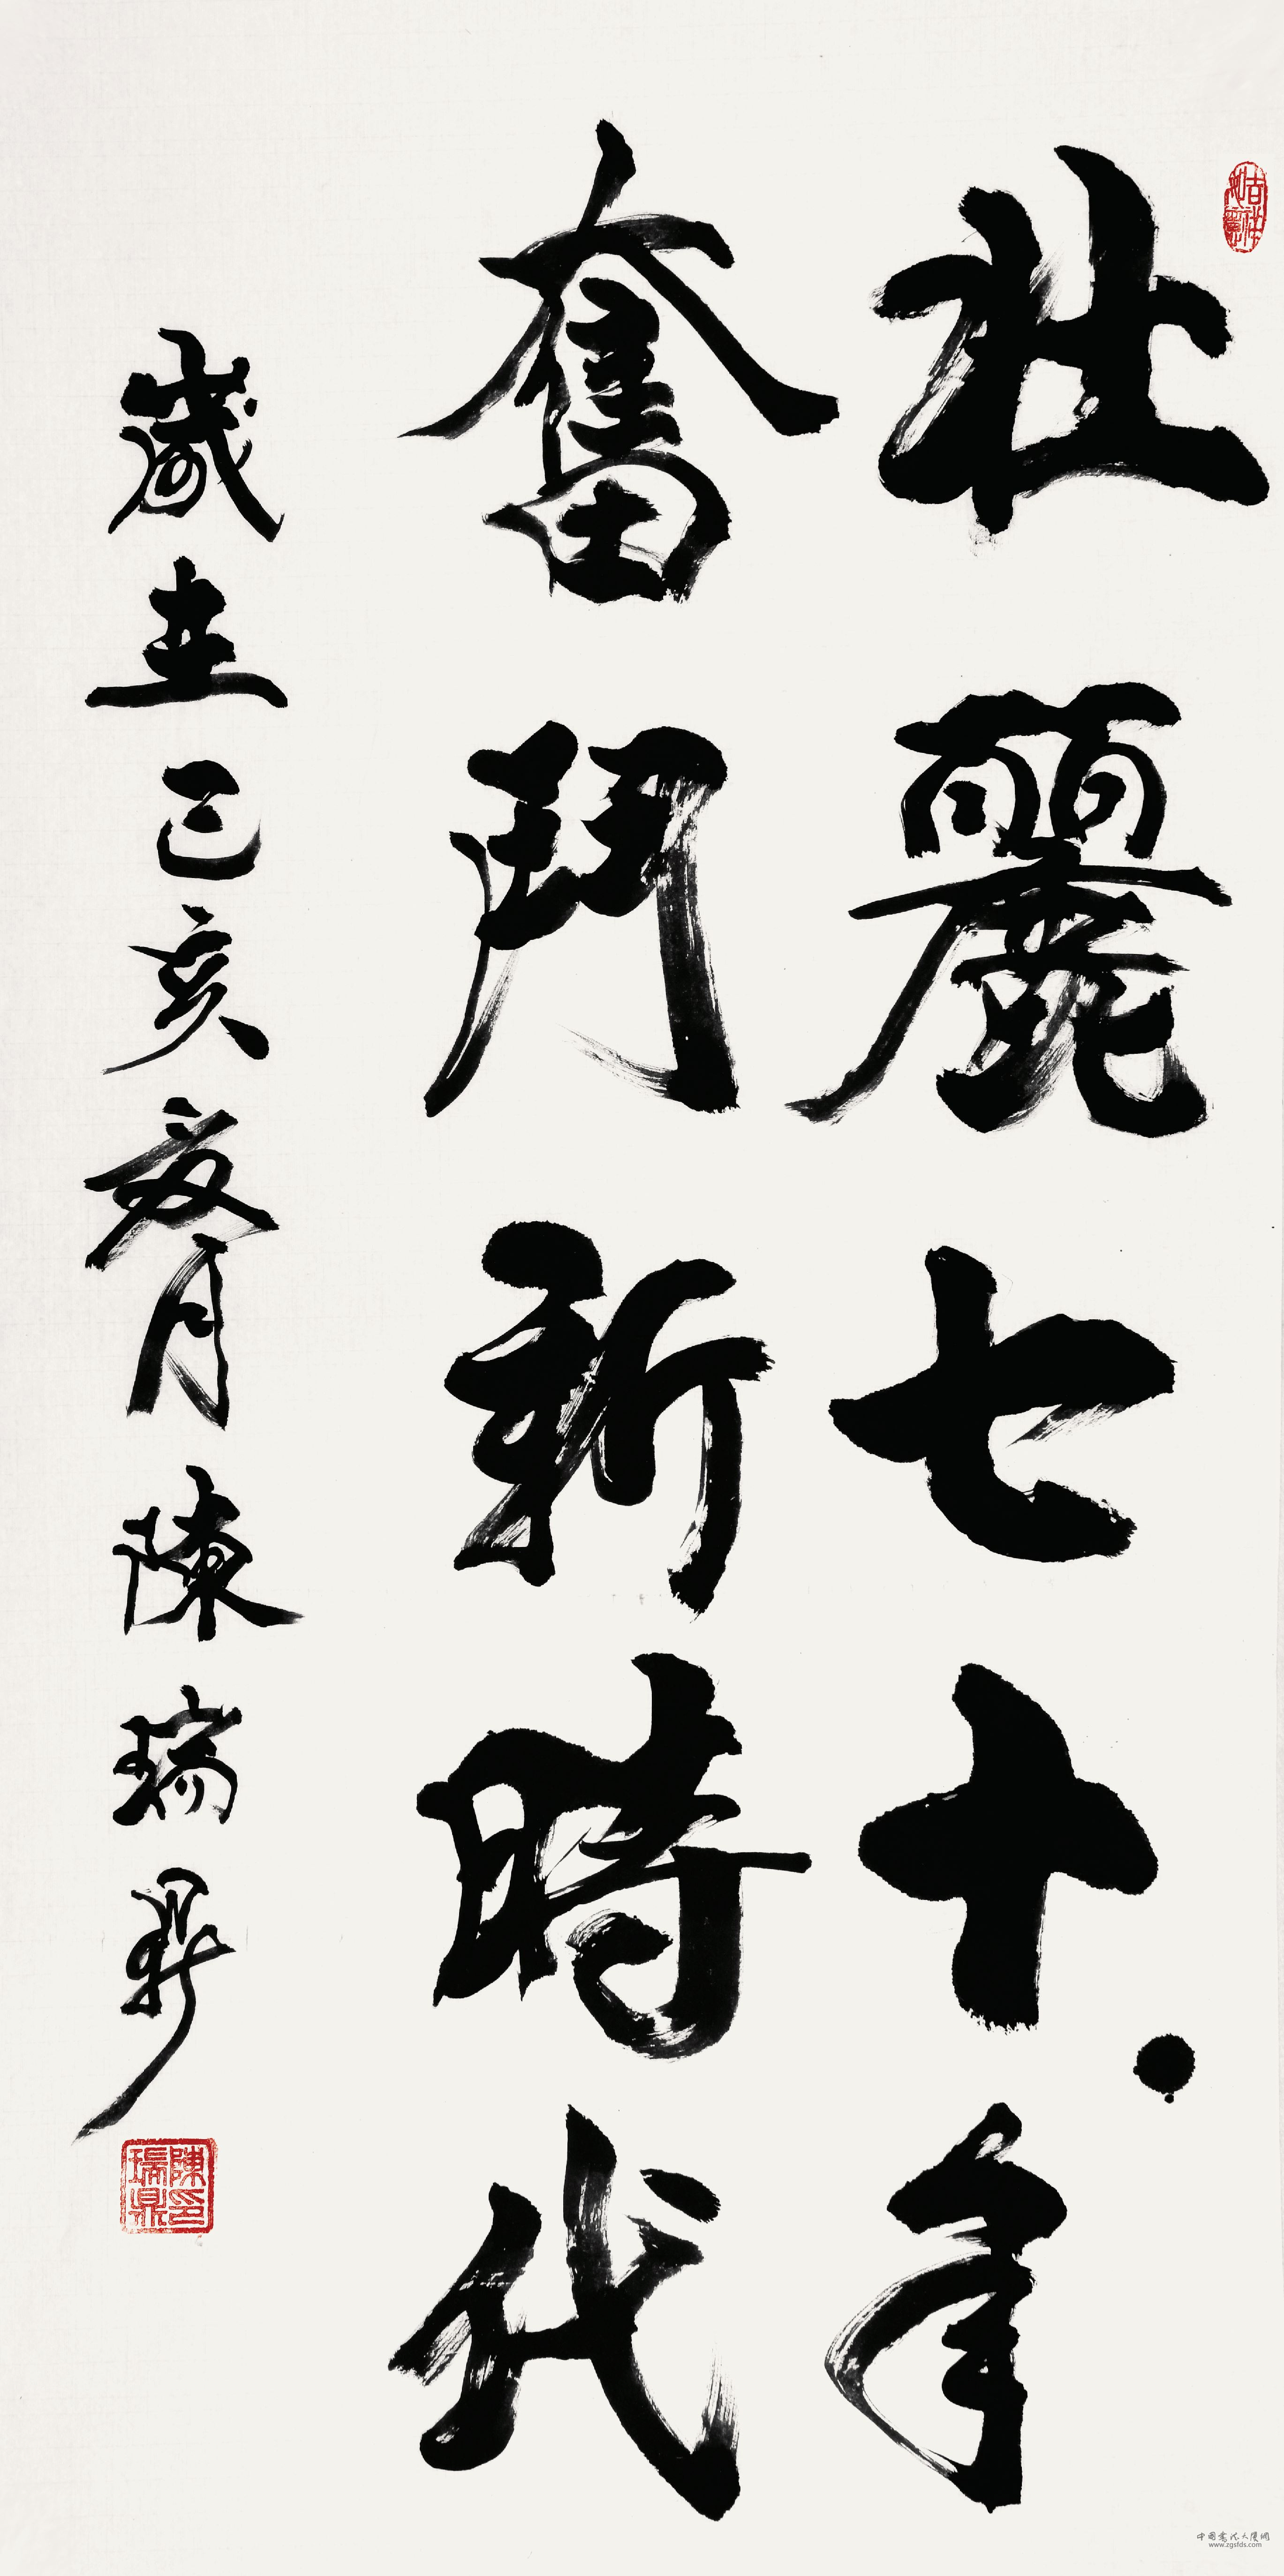 壯麗七十年
奮鬥新時代
歲在己亥夏月陳瑞鼎
吉祥如意
陳瑞鼎印
中国書法大厦網
www.zgsfds.com